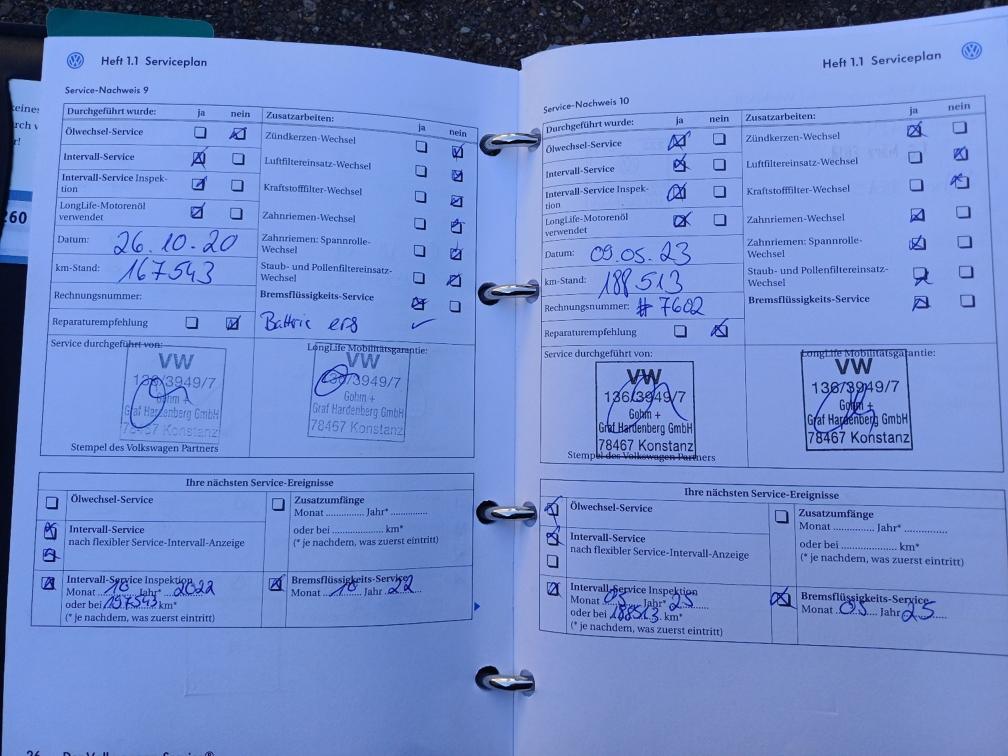 Heft 1.1 Serviceplan
Service-Nachweis 9
Durchgeführt wurde: ja nein
Ölwechsel-Service
Intervall-Service
Intervall-Service Inspek-
tion
LongLife-Motorenöl
verwendet
Datum: 26.10.20
km-Stand: 167543
Rechnungsnummer:
Reparaturempfehlung
Zusatzarbeiten: ja nein
Zündkerzen-Wechsel
Luftfiltereinsatz-Wechsel
Kraftstofffilter-Wechsel
Zahnriemen-Wechsel
Zahnriemen: Spannrolle-
Wechsel
Staub- und Pollenfiltereinsatz-
Wechsel
Bremsflüssigkeits-Service
Battrie ers
Service durchgeführt von:
VW
136/3949/7
Gohm +
Graf Hardenberg GmbH
78467 Konstanz
Stempel des Volkswagen Partners
LongLife Mobilitätsgarantie:
VW
136/3949/7
Gohm +
Graf Hardenberg GmbH
78467 Konstanz
Ihre nächsten Service-Ereignisse
Ölwechsel-Service
Intervall-Service
nach flexibler Service-Intervall-Anzeige
Intervall-Service Inspektion
Monat 10 Jahr* 2022
oder bei 197543 km*
(* je nachdem, was zuerst eintritt)
Zusatzumfänge
Monat ............ Jahr* .............
oder bei .................. km*
(* je nachdem, was zuerst eintritt)
Bremsflüssigkeits-Service
Monat 10 Jahr 22
Heft 1.1 Serviceplan
Service-Nachweis 10
Durchgeführt wurde: ja nein
Ölwechsel-Service
Intervall-Service
Intervall-Service Inspek-
tion
LongLife-Motorenöl
verwendet
Datum: 09.05.23
km-Stand: 188513
Rechnungsnummer: # 7602
Reparaturempfehlung
Zusatzarbeiten: ja nein
Zündkerzen-Wechsel
Luftfiltereinsatz-Wechsel
Kraftstofffilter-Wechsel
Zahnriemen-Wechsel
Zahnriemen: Spannrolle-
Wechsel
Staub- und Pollenfiltereinsatz-
Wechsel
Bremsflüssigkeits-Service
Service durchgeführt von:
VW
136/3949/7
Gohm +
Graf Hardenberg GmbH
78467 Konstanz
Stempel des Volkswagen Partners
LongLife Mobilitätsgarantie:
VW
136/3949/7
Gohm +
Graf Hardenberg GmbH
78467 Konstanz
Ihre nächsten Service-Ereignisse
Ölwechsel-Service
Intervall-Service
nach flexibler Service-Intervall-Anzeige
Intervall-Service Inspektion
Monat 05 Jahr* 25
oder bei 188513 km*
(* je nachdem, was zuerst eintritt)
Zusatzumfänge
Monat ............ Jahr* .............
oder bei .................. km*
(* je nachdem, was zuerst eintritt)
Bremsflüssigkeits-Service
Monat 05 Jahr 25